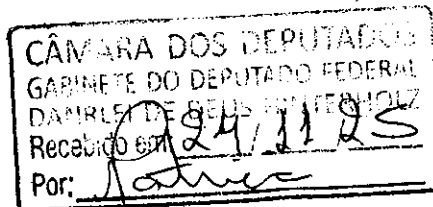 CÂMARA DOS DEPUTADOS
GABINETE DO DEPUTADO FEDERAL
DANRLEI DE DEUS HINTERHOLZ
Recebido em 24/11/25
Por: